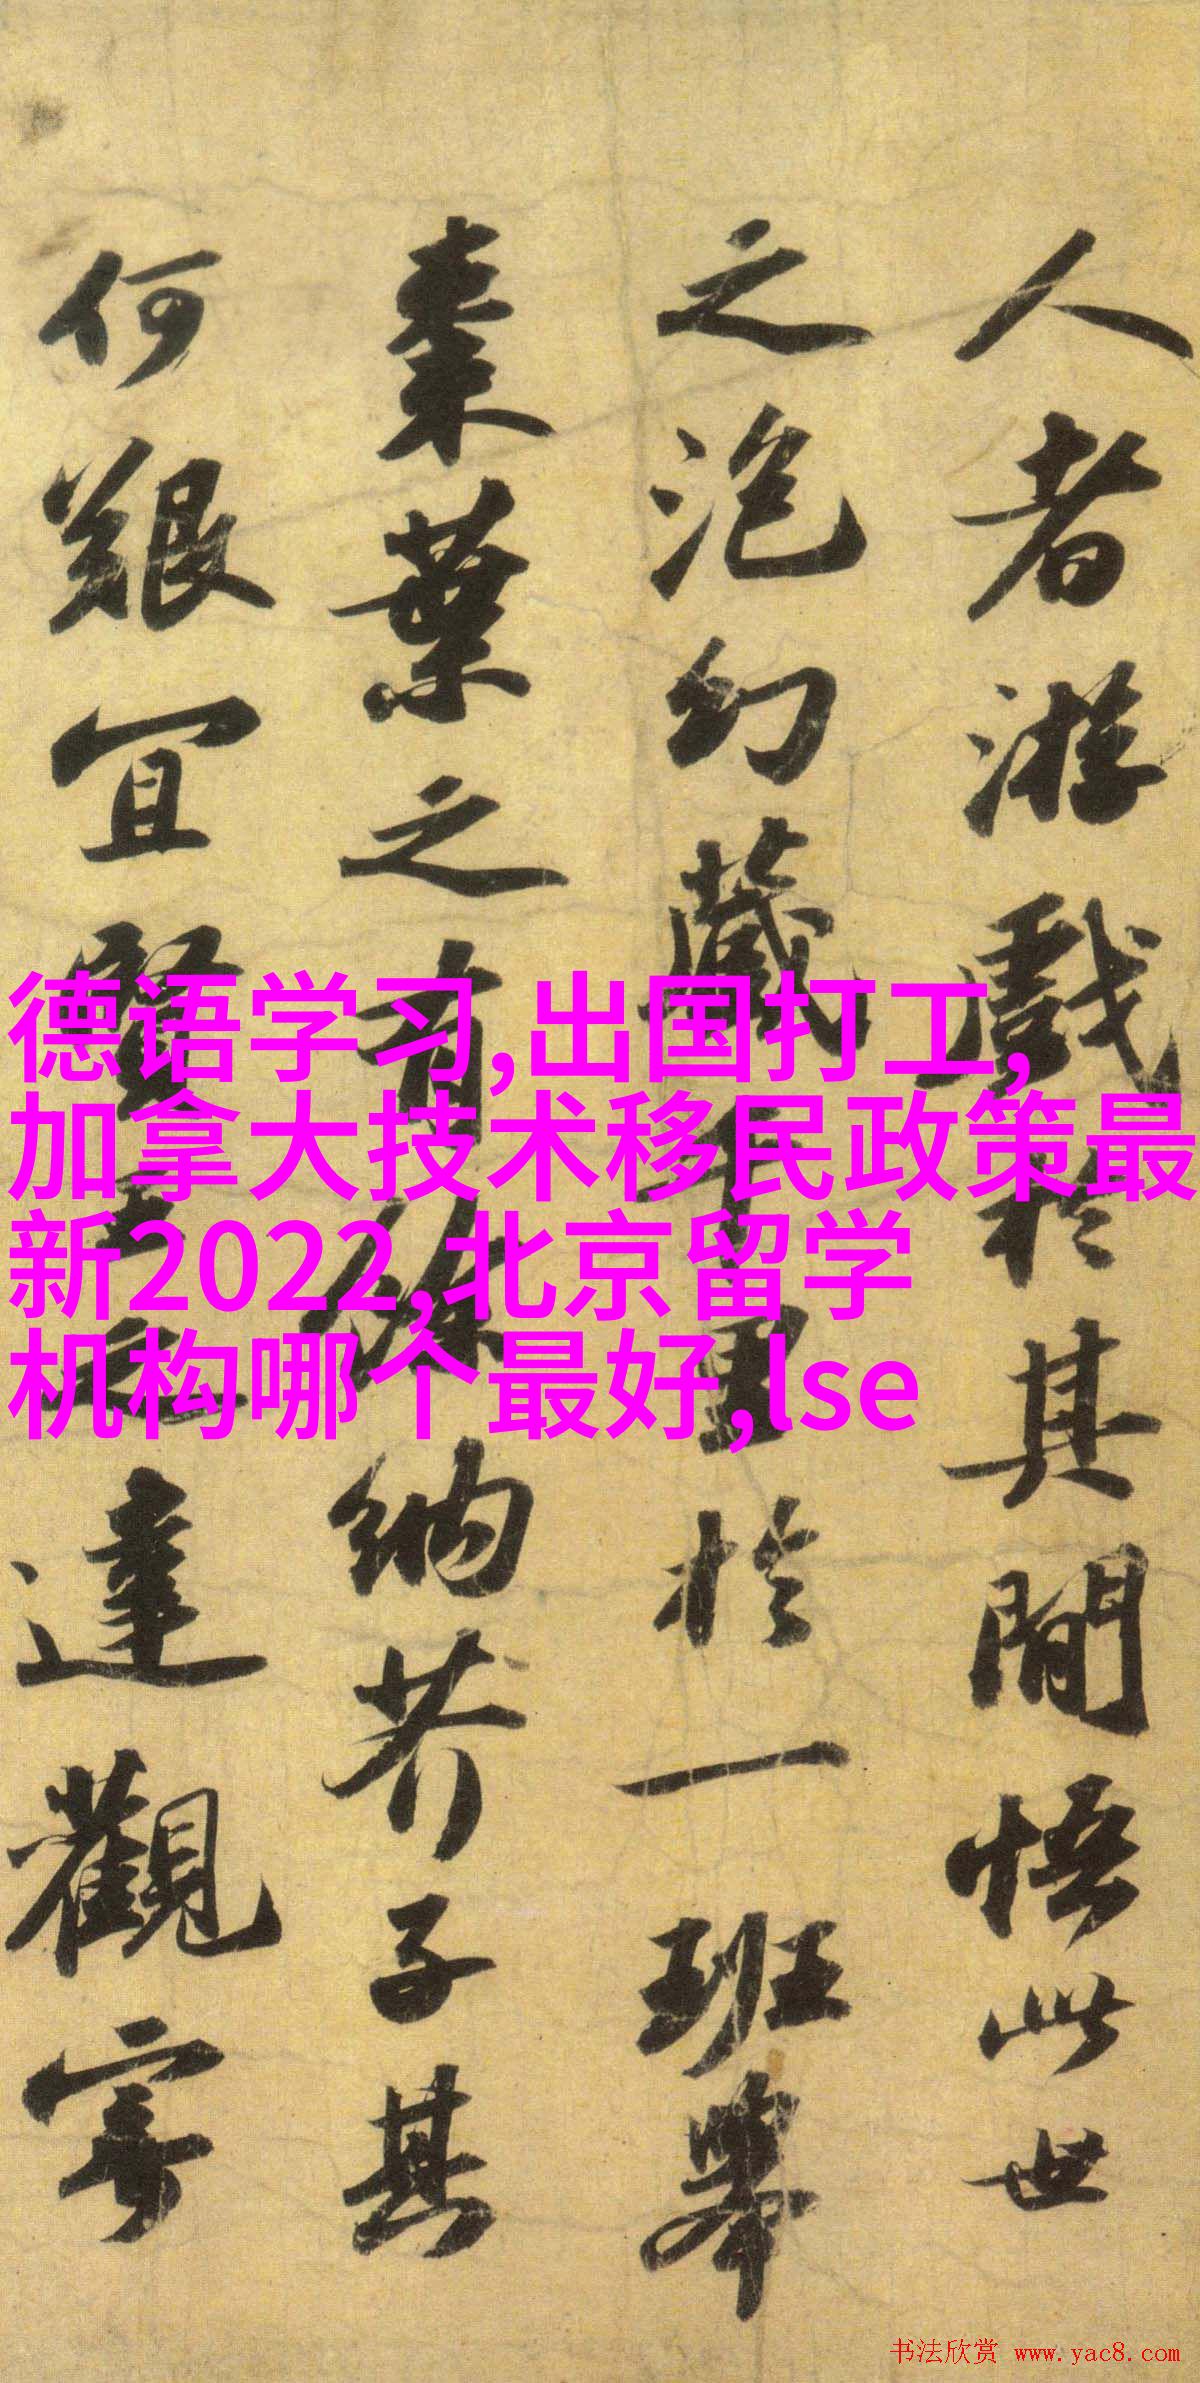 人者游戲於其間悟此世
之泡幻藏千里於一班舉
棗葉之有餘納芥子其
何艱宜賢王之達觀寄
德语学习,出国打工,
加拿大技术移民政策最
新2022,北京留学
机构哪个最好,lse
书法欣赏 www.yac8.com